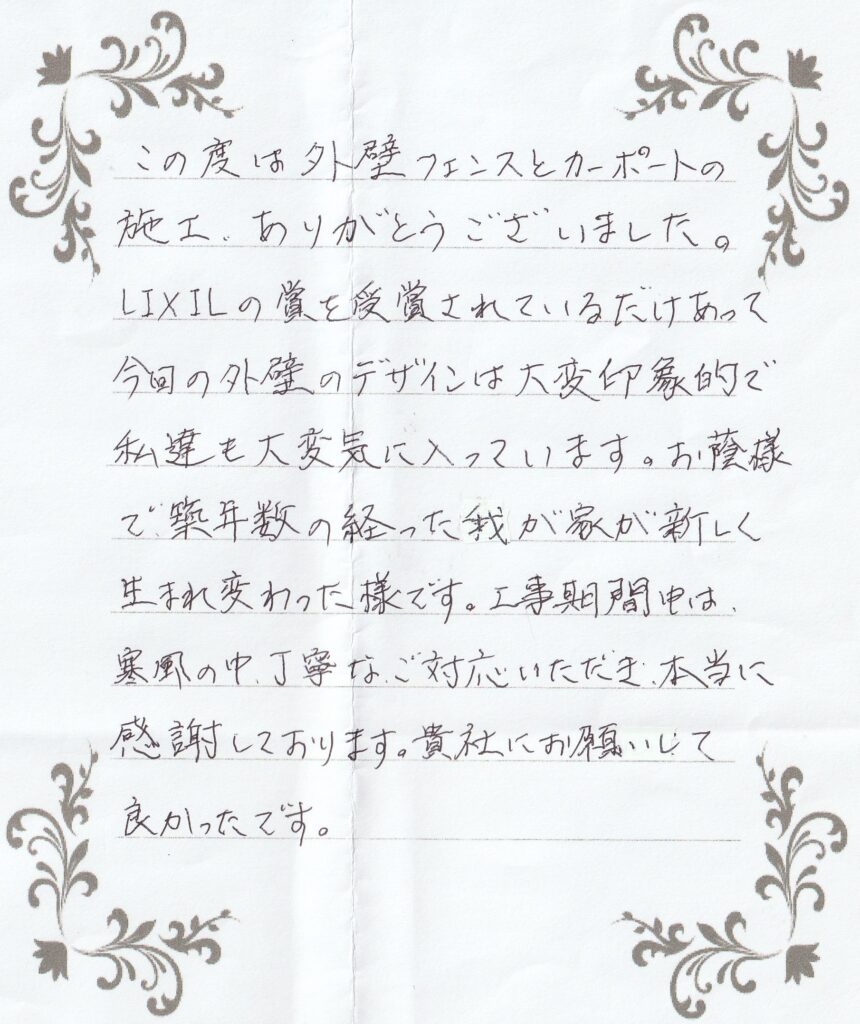 この度は外壁フェンスとカーポートの
施工、ありがとうございました。
LIXILの賞を受賞されているだけあって
今回の外壁のデザインは大変印象的で
私達も大変気に入っています。お蔭様
で、築年数の経った我が家が新しく
生まれ変わった様です。工事期間中は、
寒風の中、丁寧な、ご対応いただき、本当に
感謝しております。貴社にお願いして
良かったです。